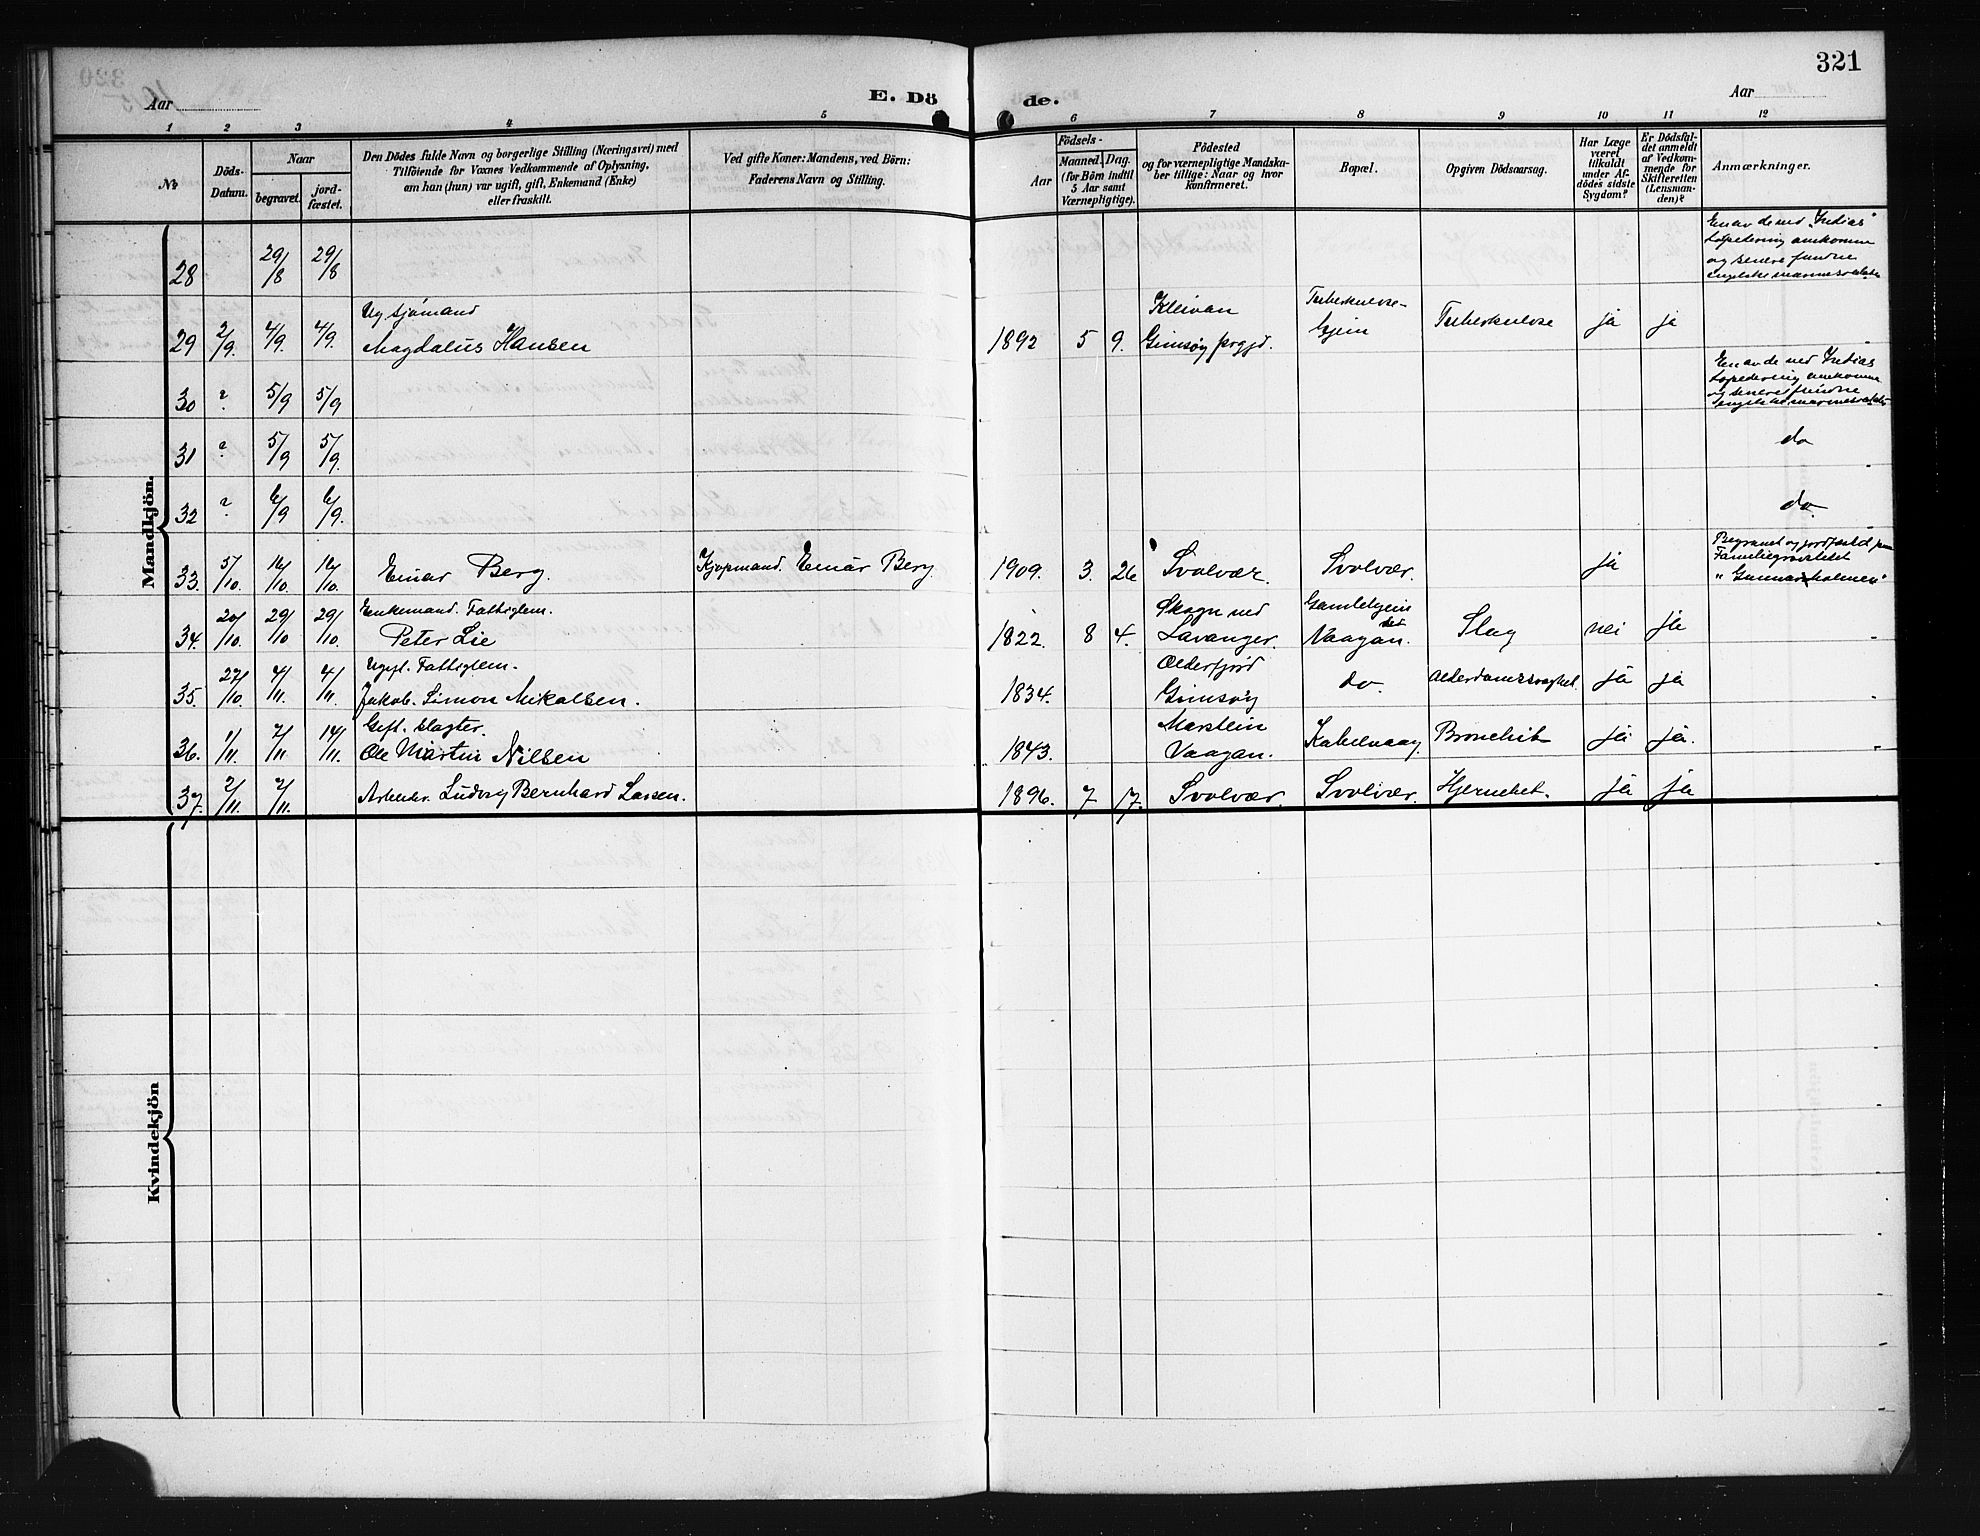 321
Aar
E. Dö de.
Aar
1 2 3 4 5 6 7 8 9 10 11 12
No
Döds-Datum.
Naar
begravet.
jord-fæstet.
Den Dödes fulde Navn og borgerlige Stilling (Næringsvei) med
Tilföiende for Voxnes Vedkommende af Oplysning,
om han (hun) var ugift, gift, Enkemand (Enke)
eller fraskilt.
Ved gifte Koner: Mandens, ved Börn:
Faderens Navn og Stilling.
Födsels-
Aar
Maaned. Dag.
(for Börn indtil
5 Aar samt
Værnepligtige).
Födested
og for værnepligtige Mandska-
ber tillige: Naar og hvor
konfirmeret.
Bopæl.
Opgiven Dödsaarsag.
Har Læge
været
tilkaldt
under Af-
dödes sidste
Sygdom?
Er Dödsfal-
det anmeldt
af Vedkom-
mende for
Skifteretten
(Lensman-
den)?
Anmærkninger.
Mandkjön.
28 29/8 29/8 En av de ved "Indias"
torpedering omkomne
og senere fundne
engelske marinesoldater
29 2/9. 4/9. 4/9. Ug sjömand
Magdalus Hansen 1892 5 9. Kleivan
Gimsöy prgjd. Tuberkulose-
hjem Tuberkulose ja ja
30 ? 5/9 5/9 En av de ved Indias
torpedering omkomne
og senere fundne
engelske marinesoldater
31 ? 5/9 5/9. do
32 ? 6/9 6/9. do.
33. 5/10. 16/10 16/10. Einar Berg. Kjøpmand. Einar Berg. 1909. 3. 26 Svolvær. Svolvær. ja Begravet og jordfæstet paa
Familiegravstedet
"Gunnarholmen"
34. 20/10. 29/10 29/10. Enkemand. Fattiglem.
Peter Lie 1822. 8 4. Skogn ved
Levanger. Gamlehjem
Vaagan. Slag nei ja
35. 27/10. 4/11. 4/11. Ugift. Fattiglem.
Jakob Simon Mikalsen. 1834. Olderfjord
Gimsöy do. Alderdomssvaghet. ja ja
36. 1/11. 7/11 14/11. Gift. slagter.
Ole Martin Nilsen 1843. Marstein
Vaagan. Kabelvaag. Bronchit ja ja.
37. 2/11. 7/11. Arbeider. Ludvig Bernhard Larsen. 1896. 7 17. Svolvær. Svolvær. ja ja
Kvindekjön